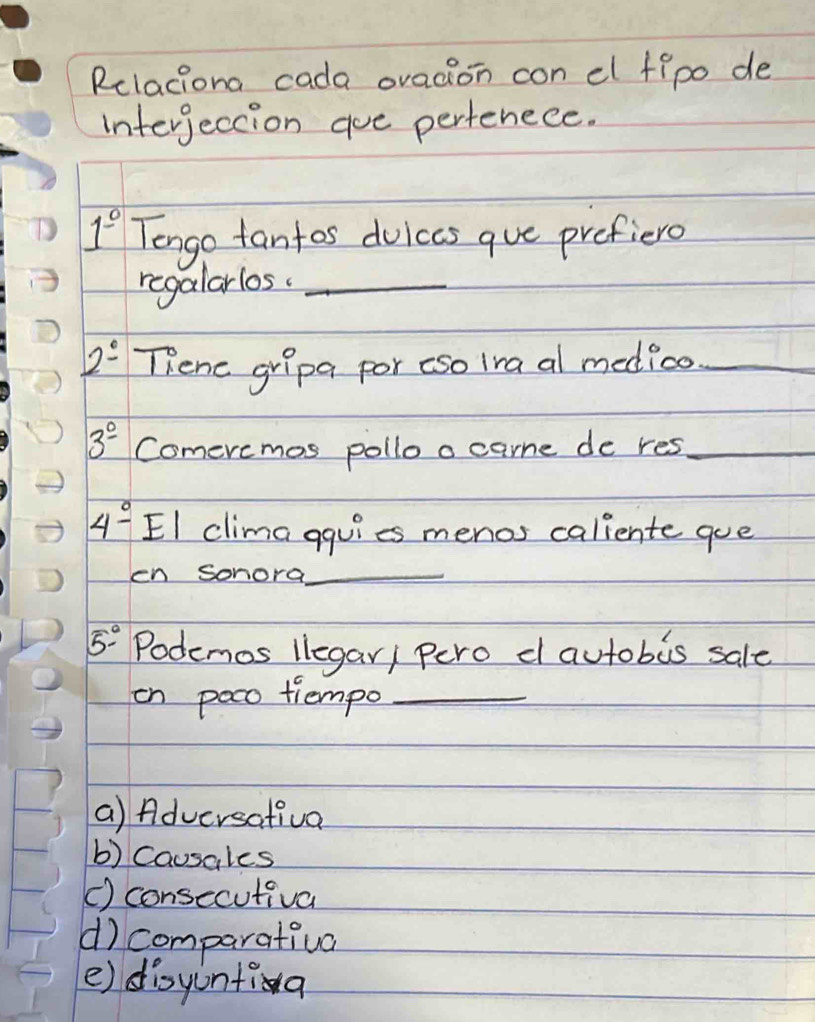 Relaciona cada oración con el tipo de
interjeccion que pertenece.
1º Tengo tantos dulces que prefiero
regalarlos. ______
2º Tiene gripa por eso ira al medico.______
3º Comeremos pollo o carne de res______
4º El clima aqui es menos caliente que
en sonora______
5º Podemos llegar, pero el autobús sale
en poco tiempo______
a) Adversativa
b) Causales
c) consecutiva
d) comparativa
e) disyuntiva